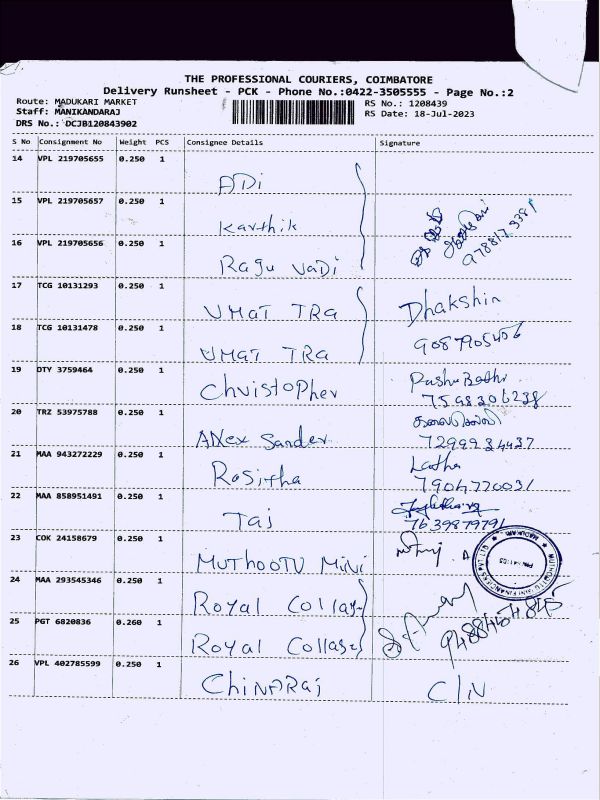 THE PROFESSIONAL COURIERS, COIMBATORE
Delivery Runsheet - PCK - Phone No.:0422-3505555 - Page No.:2
Route: MADUKARI MARKET RS No.: 1208439
Staff: MANIKANDARAJ RS Date: 18-Jul-2023
DRS No.: DCJB120843902
S No Consignment No Weight PCS Consignee Details Signature
14 VPL 219705655 0.250 1 ADi
15 VPL 219705657 0.250 1 Karthik
16 VPL 219705656 0.250 1 Ragu VaDi
17 TCG 10131293 0.250 1 UMaT TRa Dhakshin
18 TCG 10131478 0.250 1 UMaT TRa 9087905456
19 DTY 3759464 0.250 1 Christopher
7598306238
20 TRZ 53975788 0.250 1 ANex Sander கலைசெல்வி
7299934437
21 MAA 943272229 0.250 1 Rositha Latha
7904770031
22 MAA 858951491 0.250 1 Taj
7639879791
23 COK 24158679 0.250 1 MUTHOOTU MiNi
24 MAA 293545346 0.250 1 Royal Collage
25 PGT 6820836 0.260 1 Royal Collage 9488454845
26 VPL 402785599 0.250 1 ChiNARaj C/N